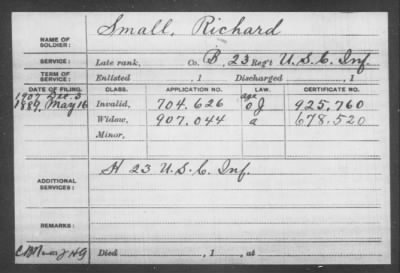 NAME OF SOLDIER: Small, Richard
SERVICE: Late rank, Co. B, 23 Reg't U.S.C. Inf.
TERM OF SERVICE: Enlisted , 1 Discharged , 1
DATE OF FILING. CLASS. APPLICATION NO. LAW. CERTIFICATE NO.
1907 Dec. 3 Invalid, 704.626 age 925,760
1889, May 16 Widow, 907.044 a 678.520
Minor,
ADDITIONAL SERVICES: H 23 U.S.C. Inf.
REMARKS:
Died , 1 , at